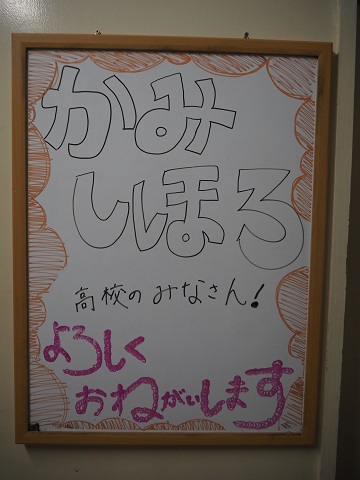 かみ
しほろ
高校のみなさん!
よろしく
おねがいします